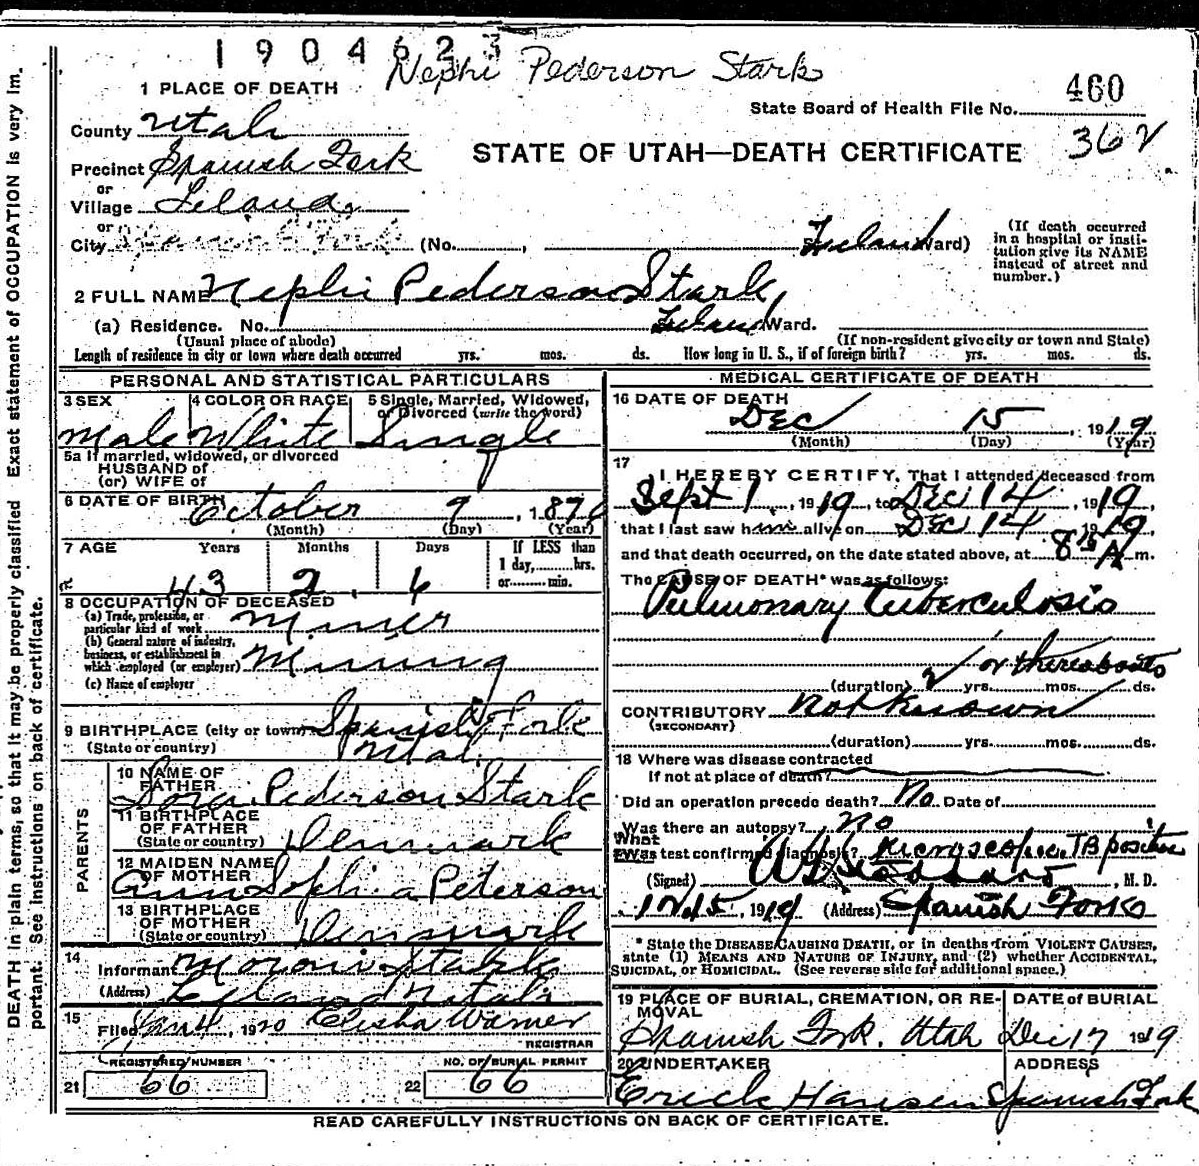 1904623
Nephi Pederson Stark
1 PLACE OF DEATH
460
State Board of Health File No.
County Utah
362
Precinct Spanish Fork
STATE OF UTAH—DEATH CERTIFICATE
or
Village Leland
or
City (No. , Leland Ward)
(If death occurred in a hospital or institution give its NAME instead of street and number.)
2 FULL NAME Nephi Pederson Stark
(a) Residence. No. Leland Ward.
(Usual place of abode) (If non-resident give city or town and State)
Length of residence in city or town where death occurred yrs. mos. ds. How long in U. S., if of foreign birth? yrs. mos. ds.
PERSONAL AND STATISTICAL PARTICULARS
3 SEX Male
4 COLOR OR RACE White
5 Single, Married, Widowed, or Divorced (write the word) Single
5a If married, widowed, or divorced
HUSBAND of
(or) WIFE of
6 DATE OF BIRTH October 9, 1876
(Month) (Day) (Year)
7 AGE Years Months Days If LESS than
1 day, hrs.
or min.
43 2 6
8 OCCUPATION OF DECEASED
(a) Trade, profession, or
particular kind of work Miner
(b) General nature of industry,
business, or establishment in
which employed (or employer) Mining
(c) Name of employer
9 BIRTHPLACE (city or town) Spanish Fork
(State or country) Utah
PARENTS
10 NAME OF FATHER Pederson Stark
11 BIRTHPLACE OF FATHER
(State or country) Denmark
12 MAIDEN NAME OF MOTHER Ann Sophia Peterson
13 BIRTHPLACE OF MOTHER
(State or country) Denmark
14 Informant Moroni Stark
(Address) Leland Utah
15 Filed Jan 4, 1920 Elisha Warner
REGISTRAR
REGISTERED NUMBER NO. OF BURIAL PERMIT
21 66 22 66
MEDICAL CERTIFICATE OF DEATH
16 DATE OF DEATH
Dec 15, 1919
(Month) (Day) (Year)
17 I HEREBY CERTIFY, That I attended deceased from
Sept 1, 1919, to Dec 14, 1919,
that I last saw him alive on Dec 14 1919,
and that death occurred, on the date stated above, at 8 A m.
The CAUSE OF DEATH* was as follows:
Pulmonary tuberculosis
or thereabouts
(duration) 2 yrs. mos. ds.
CONTRIBUTORY not known
(SECONDARY)
(duration) yrs. mos. ds.
18 Where was disease contracted
If not at place of death?
Did an operation precede death? No Date of
Was there an autopsy? no
What test confirmed diagnosis? Microscopic TB positive
(Signed) , M. D.
12/15, 1919 (Address) Spanish Fork
* State the DISEASE CAUSING DEATH, or in deaths from VIOLENT CAUSES,
state (1) MEANS AND NATURE OF INJURY, and (2) whether ACCIDENTAL,
SUICIDAL, or HOMICIDAL. (See reverse side for additional space.)
19 PLACE OF BURIAL, CREMATION, OR REMOVAL DATE of BURIAL
Spanish Fork, Utah Dec 17 1919
20 UNDERTAKER ADDRESS
Erick Hansen Spanish Fork
READ CAREFULLY INSTRUCTIONS ON BACK OF CERTIFICATE.
DEATH in plain terms, so that it may be properly classified Exact statement of OCCUPATION is very im.
portant. See instructions on back of certificate.